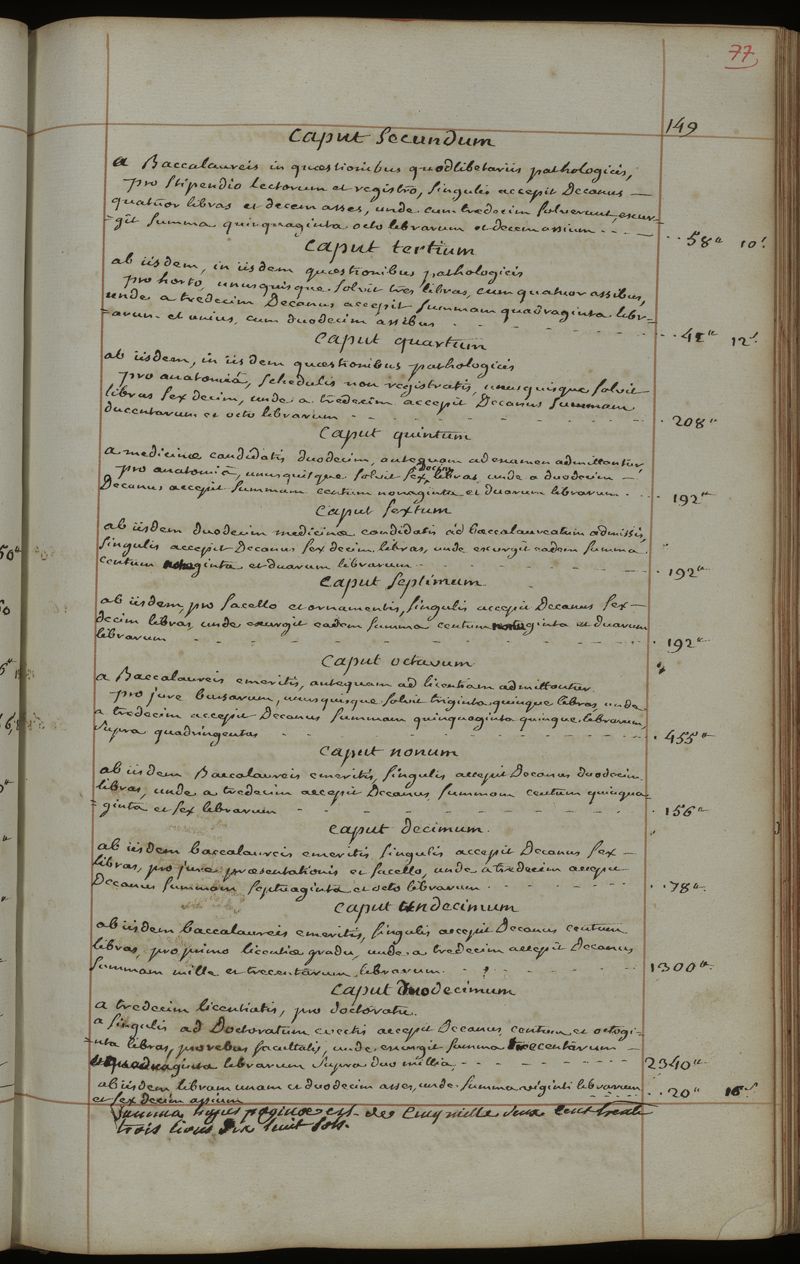 77
149
Caput Secundum
a Baccalaureis in quæstionibus quodlibetariis pathologicis,
pro stipendio lectorum et registro, singulis accepit Decanus —
quatuor libras et decem asses, unde cum tredecim solverunt, exur-
=git summa quinquaginta octo librarum et decem assium - - - - 58ᵗᵗ 10ˢ
Caput tertium
ab iisdem, in iisdem quæstionibus pathologicis
pro horto, unusquisque solvit tres libras, cum quatuor assibus,
unde a tredecim Decanus accepit summam quadraginta libr-
=arum et unius, cum duodecim assibus - - - 41ᵗᵗ 12ˢ
Caput quartum
ab iisdem, in iisdem quæstionibus pathologicis
pro anatomiâ, schedulis non registratis, unusquisque solvit
libras sex decim, unde a tredecim accepit Decanus summam
ducentarum et octo librarum - - - 208ᵗᵗ
Caput quintum
a medicinæ candidatis duodecim, antequam ad examen admittantur,
pro anatomiâ, unusquisque solvit sex decim libras, unde a duodecim —
Decanus accepit summam centum nonaginta et duarum librarum - - 192ᵗᵗ
Caput sextum
ab iisdem duodecim medicinæ candidatis ad baccalaureatum admissis,
singulis accepit Decanus sex decim libras, unde exurgit eadem summa
centum nonaginta et duarum librarum - - - 192ᵗᵗ
Caput septimum
ab iisdem, pro sacello et ornamentis, singulis accepit Decanus sex —
decim libras, unde exurgit eadem summa centum nonaginta et duarum
librarum - - - 192ᵗᵗ
Caput octavum
a Baccalaureis emeritis, antequam ad licentiam admittantur
pro jure bursarum, unusquisque solvit triginta quinque libras, unde
a tredecim accepit Decanus summam quinquaginta quinque librarum,
supra quadringentas - - - 455ᵗᵗ
Caput nonum
ab iisdem Baccalaureis emeritis, singulis accepit Decanus duodecim
libras, unde a tredecim accepit Decanus summam centum quinqua=
=ginta et sex librarum - - - 156ᵗᵗ
Caput decimum.
ab iisdem baccalaureis emeritis singulis accepit Decanus sex —
libras, pro jure præsentationis et sacello, unde a tredecim accepit
Decanus summam septuaginta et octo librarum - - - 78ᵗᵗ
Caput undecimum
ab iisdem baccalaureis emeritis, singulis accepit Decanus centum
libras, pro primo licentiæ gradu, unde a tredecim accepit Decanus
summam mille et trecentarum librarum - - - 1300ᵗᵗ
Caput duodecimum
a tredecim licentiatis, pro doctoratu.
a singulis ad Doctoratum evectis accepit Decanus centum et octogi-
=nta libras, pro rebus facultatis, unde exurgit summa trecentarum —
et quadraginta librarum supra duo millia, - - - 2340ᵗᵗ
ab iisdem libram unam et duodecim asses, unde summa viginti librarum
et sex decim assium - - 20ᵗᵗ 16ˢ
Summa hujus paginæ est de Cinq mille deux cent trente
trois livres dix huit sols.